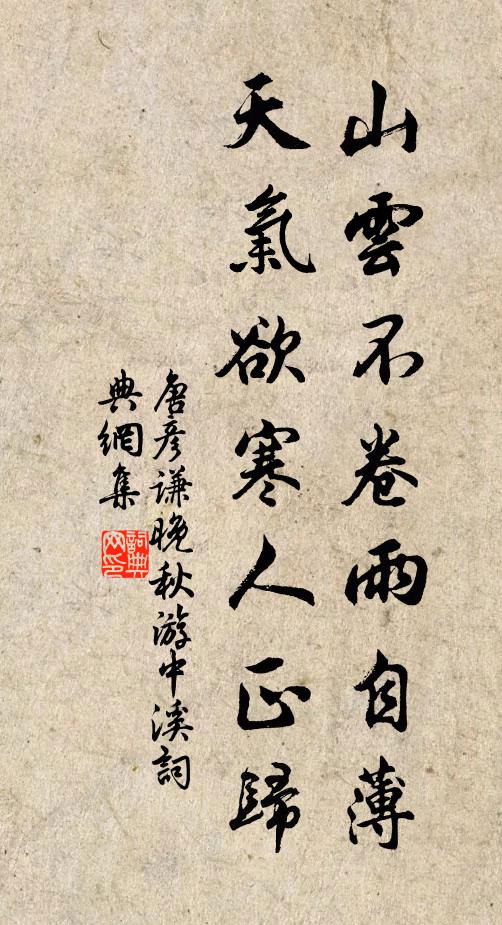 山雲不卷雨自薄
天氣欲寒人正歸
唐彥谦晚秋游中溪詞
典網集
詞典网印